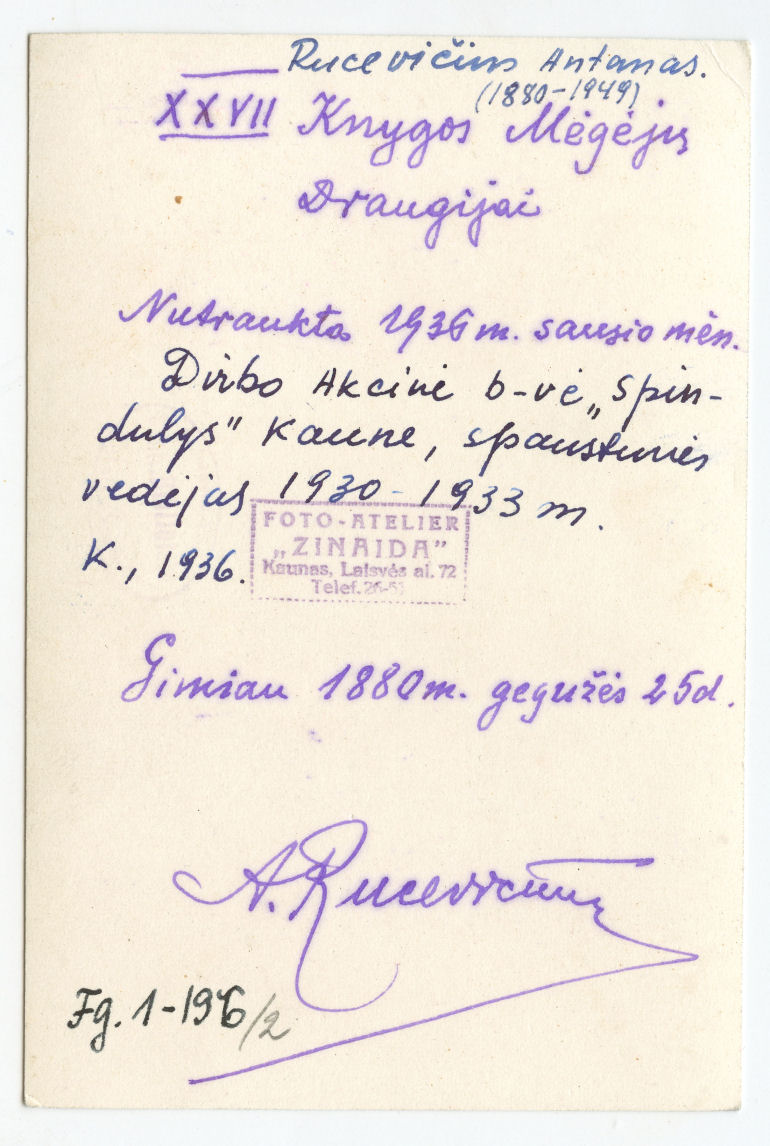 Rucevičius Antanas.
(1880-1949)
XXVII Knygos Mėgėjų
Draugijai
Nutraukta 1936 m. sausio mėn.
Dirbo Akcinė b-vė „Spin-
dulys" Kaune, spaustuvės
vedėjas 1930-1933 m.
K., 1936.
FOTO-ATELIER
„ZINAIDA"
Kaunas, Laisvės al. 72
Telef.
Gimiau 1880 m. gegužės 25d.
A. Rucevičius
Fg. 1-196/2